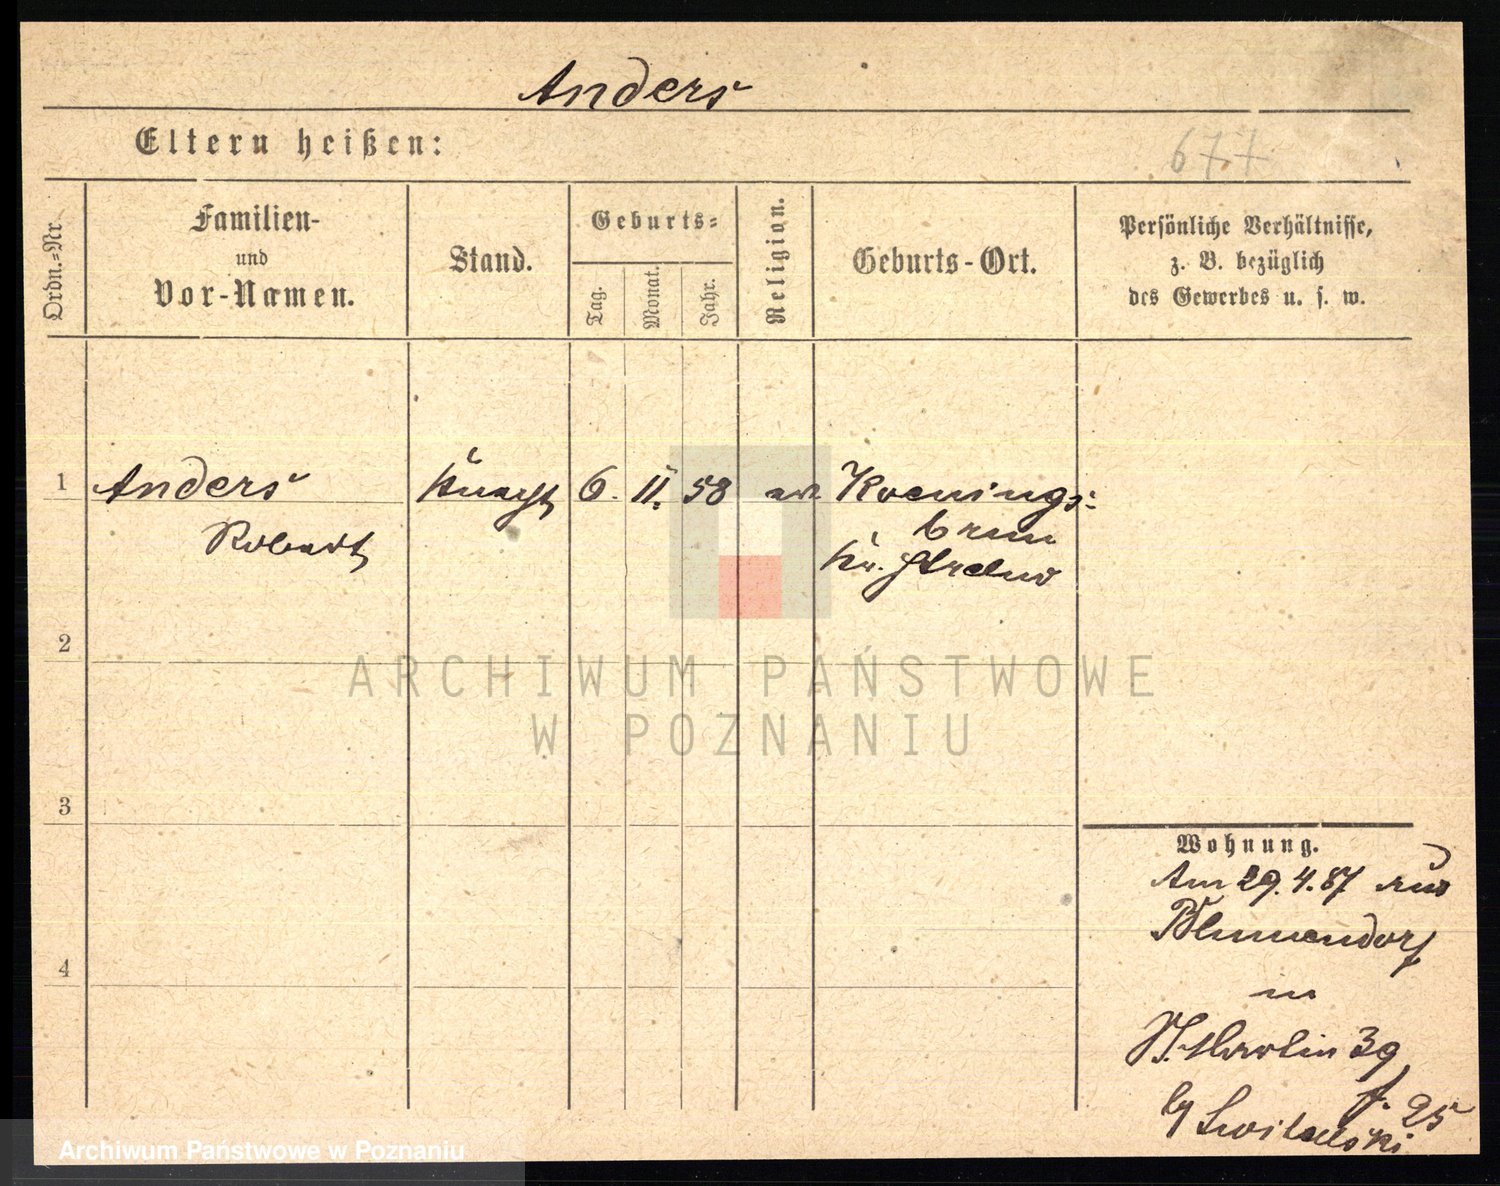 Anders
Eltern heißen:
677
Ordn.-Nr.
Familien-
und
Vor-Namen.
Stand.
Geburts-
Tag.
Monat.
Jahr.
Religion.
Geburts-Ort.
Persönliche Verhältnisse,
z. B. bezüglich
des Gewerbes u. s. w.
1 Anders Knecht 6. II. 58 ev. Koenings-
Robert brun
Kr. Strelno
2
3
4
Wohnung.
Am 29.4.87 aus
Blumendorf
in
St. Martin 39
f. 25
by
ARCHIWUM PAŃSTWOWE
W POZNANIU
Archiwum Państwowe w Poznaniu